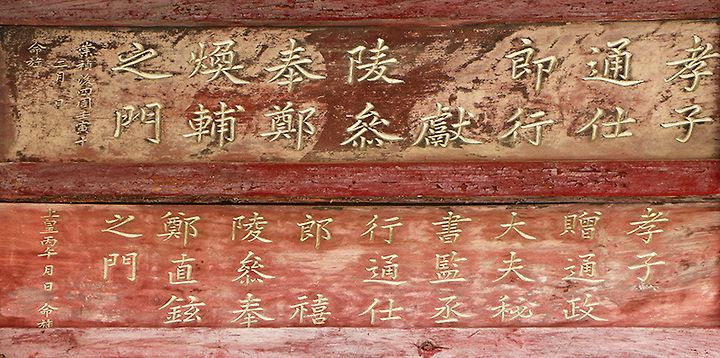 孝子
通仕
郎行
獻
陵參
奉鄭
煥輔
之門
崇禎後四周壬寅十
二月 日
命旌
孝子
贈通政
大夫秘
書監丞
行通仕
郎 禧
陵參奉
鄭直鉉
之門
上皇丙午 月 日 命旌